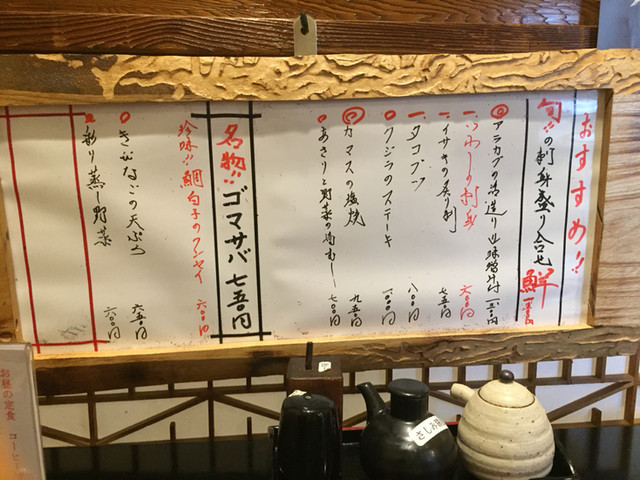 おすすめ!!
旬!!の刺身盛り合せ 鮮
◎アラカブの活造り
一いわしの刺身 六〇〇円
一イサキの炙り刺 七五〇円
一タコブツ 八〇〇円
○クジラのステーキ
◎カマスの塩焼 九五〇円
○あさりと野菜の 七〇〇円
名物!! ゴマサバ 七五〇円
珍味!! 鯛白子のフンセイ 六〇〇円
○きびないの天ぷら 六五〇円
彩り蒸し野菜 六〇〇円
お昼の定食
コーヒー
さしみ